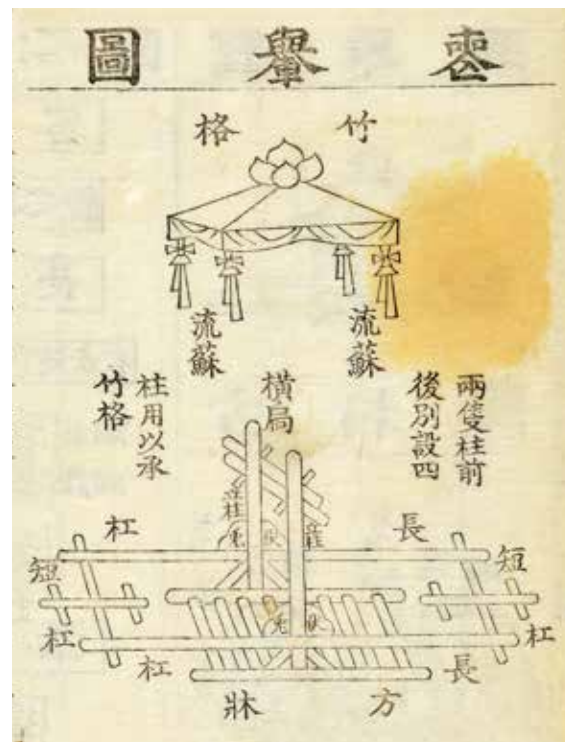 喪轝圖
竹格
流蘇
流蘇
兩隻柱前
後別設四
橫局
柱用以承
竹格
長杠
短杠
短杠
長杠
立柱
立柱
方牀